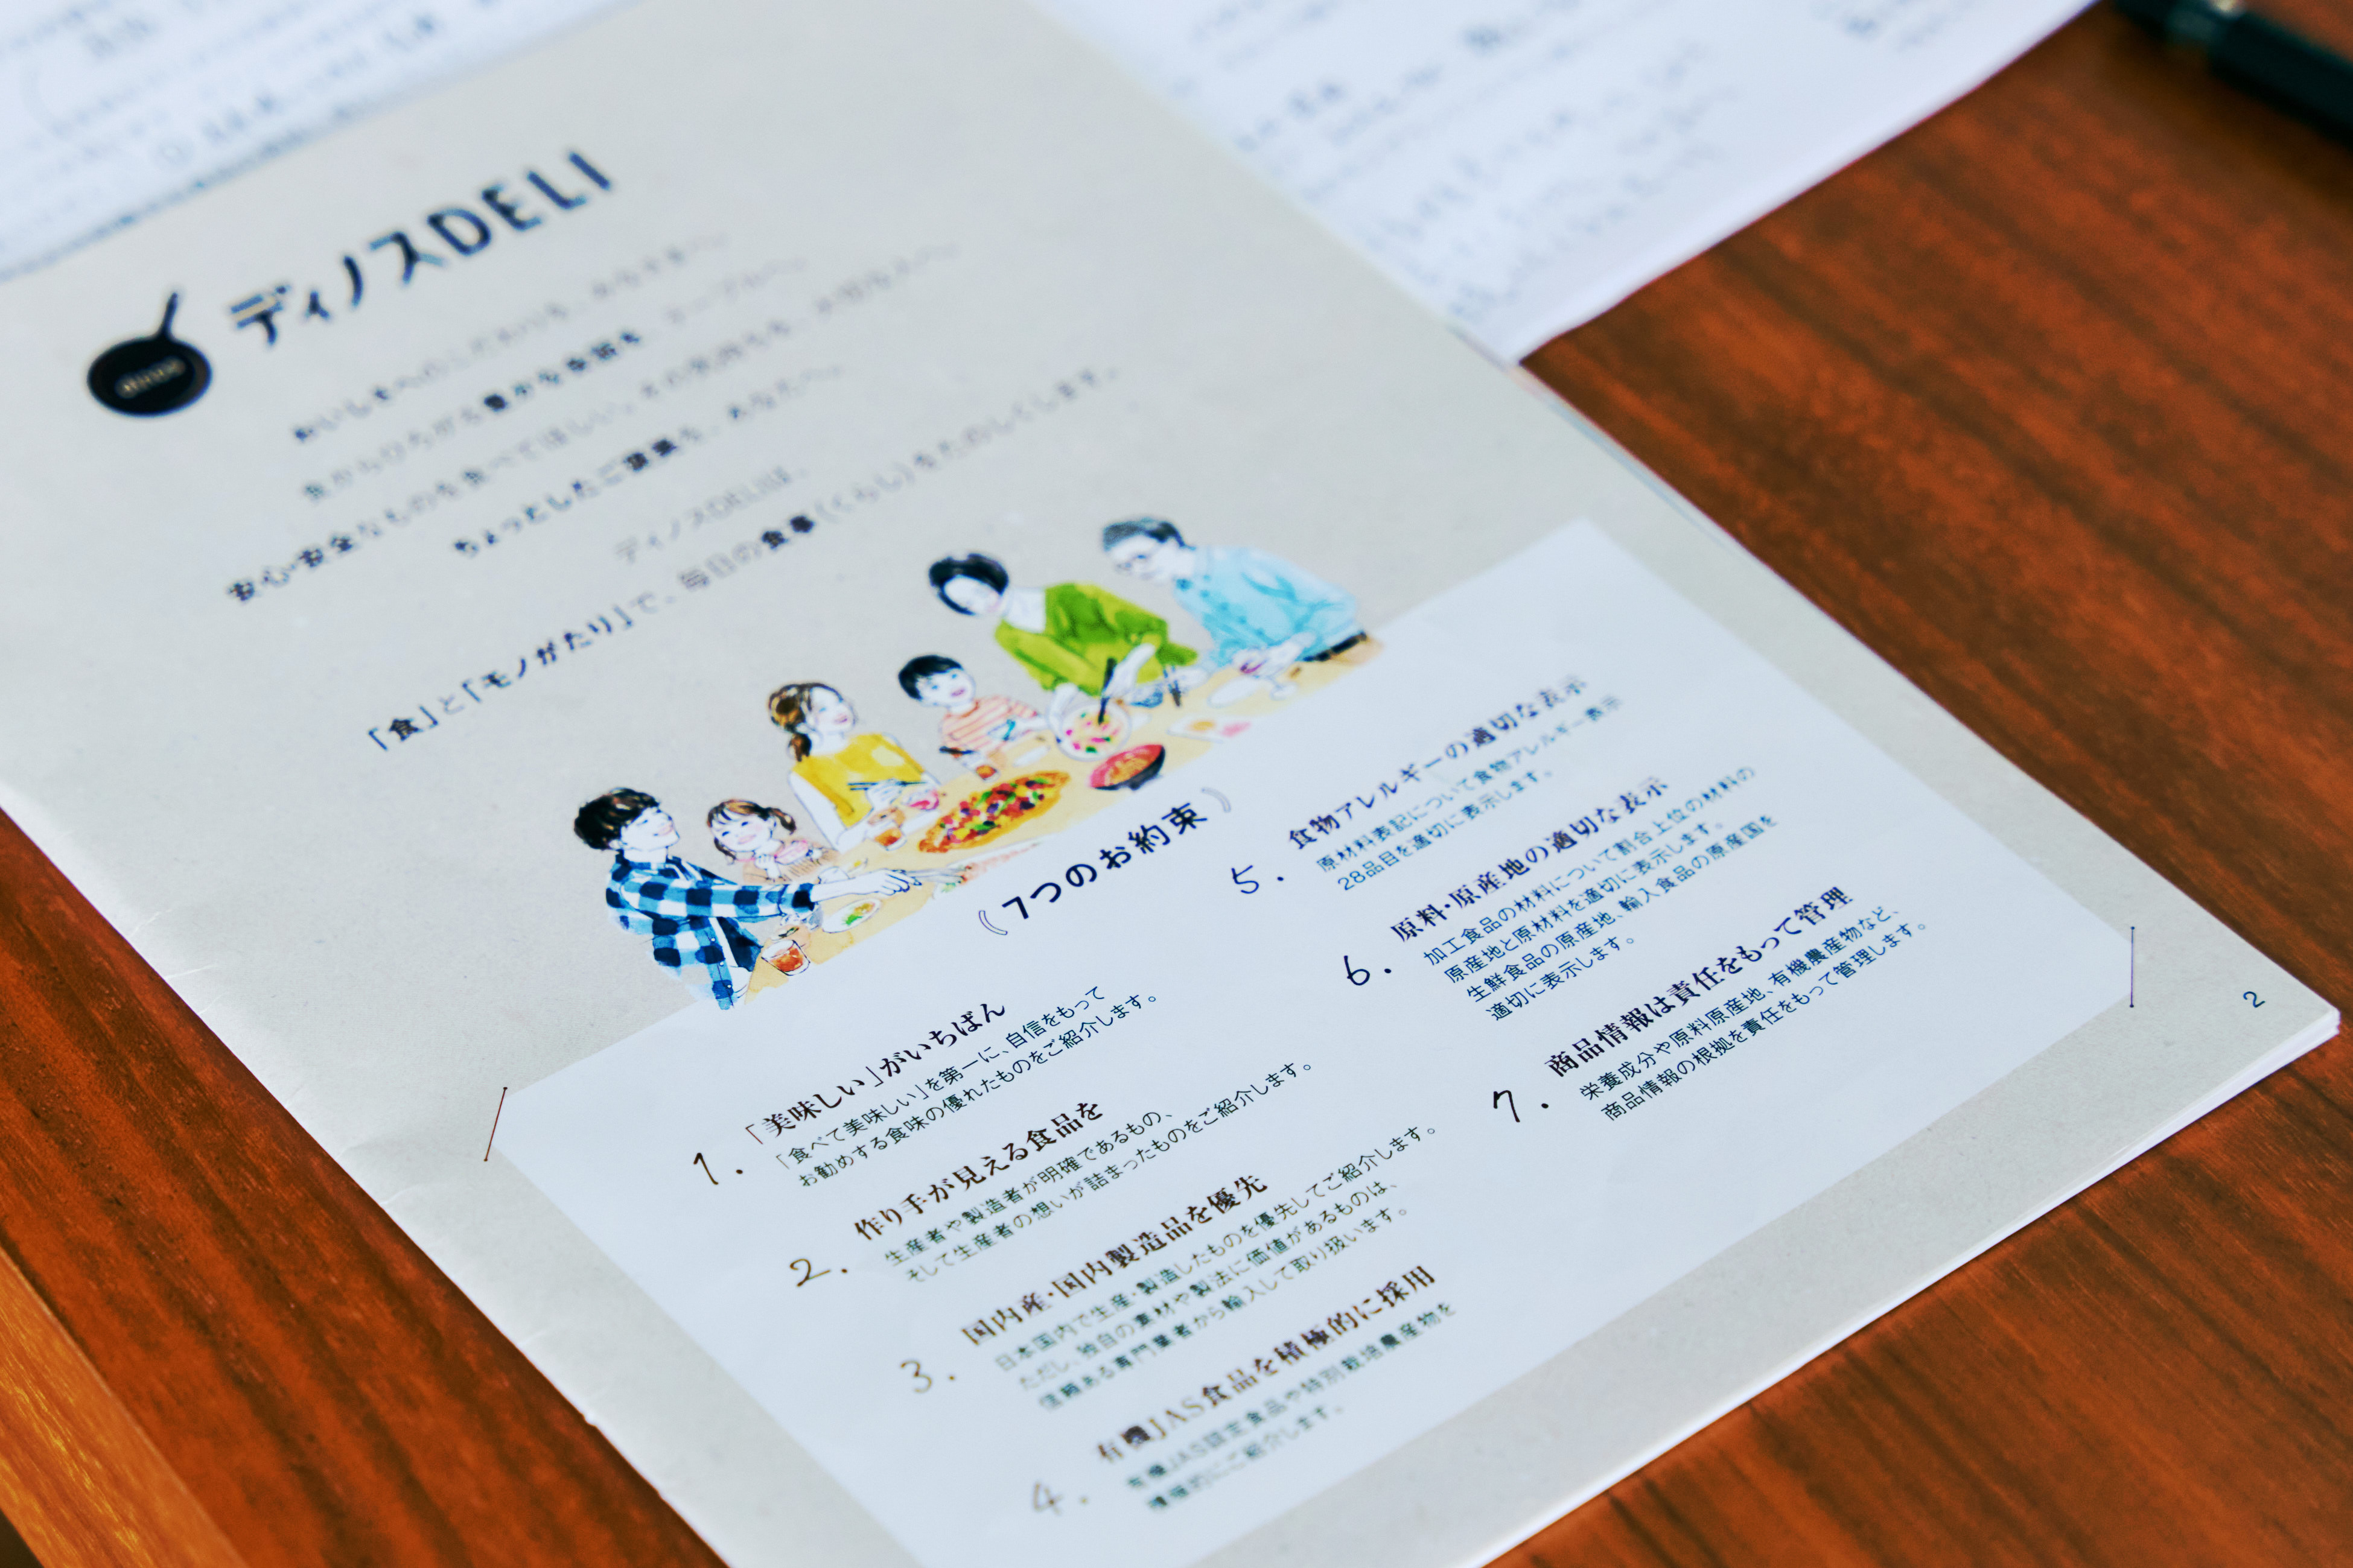 ディノスDELI
dinos
おいしさへのこだわりを、みなさまへ。
食からひろがる豊かな幸福を、テーブルへ。
安心・安全なものを食べてほしい。その気持ちを、大切な人へ。
ちょっとしたご褒美を、あなたへ。
ディノスDELIは、
「食」と「モノがたり」で、毎日の食事(くらし)をたのしくします。
7つのお約束
1.
「美味しい」がいちばん
「食べて美味しい」を第一に、自信をもって
お勧めする食味の優れたものをご紹介します。
2.
作り手が見える食品を
生産者や製造者が明確であるもの、
そして生産者の想いが詰まったものをご紹介します。
3.
国内産・国内製造品を優先
日本国内で生産・製造したものを優先してご紹介します。
ただし、独自の素材や製法に価値があるものは、
信頼ある専門業者から輸入して取り扱います。
4.
有機JAS食品を積極的に採用
有機JAS認定食品や特別栽培農産物を
積極的にご紹介します。
5.
食物アレルギーの適切な表示
原材料表記について食物アレルギー表示
28品目を適切に表示します。
6.
原料・原産地の適切な表示
加工食品の材料について割合上位の材料の
原産地と原材料を適切に表示します。
生鮮食品の原産地、輸入食品の原産国を
適切に表示します。
7.
商品情報は責任をもって管理
栄養成分や原料原産地、有機農産物など、
商品情報の根拠を責任をもって管理します。
2